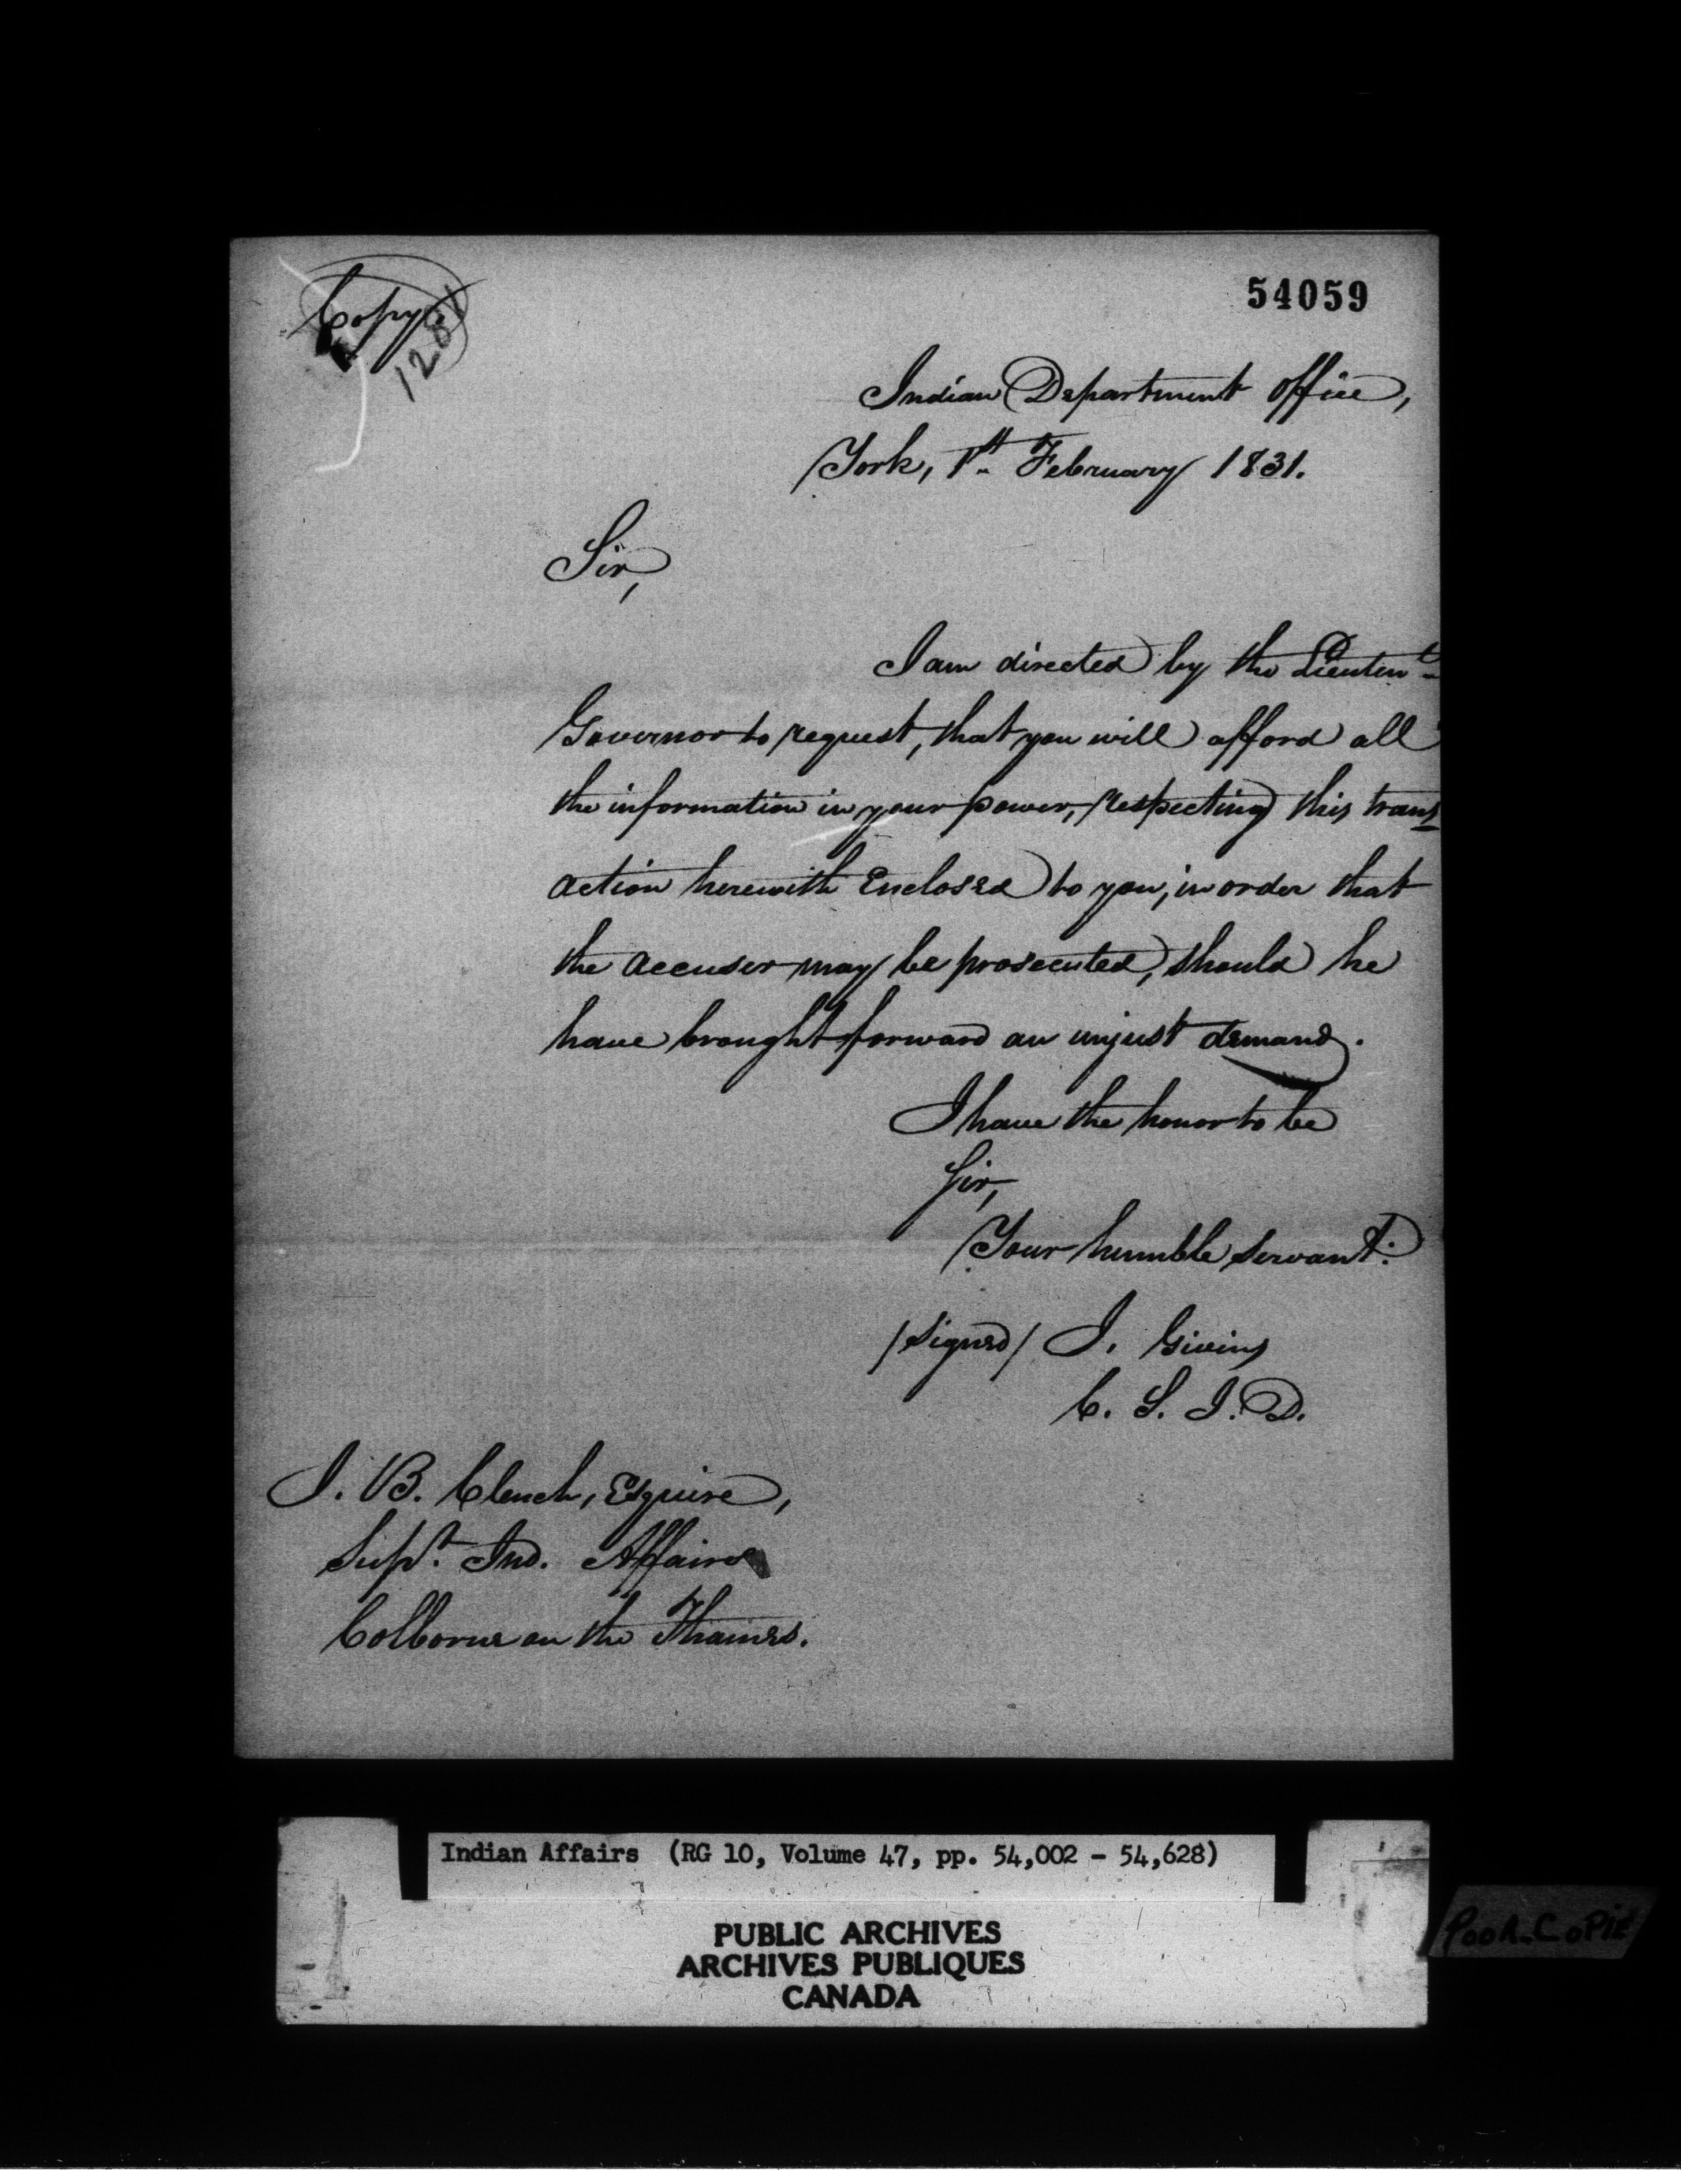 Copy
128
54059
Indian Department office,
York, 1st February 1831.
Sir,
I am directed by the Lieutent
Governor to request, that you will afford all
the information in your power, respecting this trans
action herewith Enclosed to you, in order that
the accuser may be prosecuted, should he
have brought forward an unjust demand.
I have the honor to be
Sir,
Your humble servant:
/signed/ J. Givins
C. S. I. D.
J. B. Clench, Esquire,
Supt. Ind. Affairs
Colborne on the Thames.
Indian Affairs (RG 10, Volume 47, pp. 54,002 - 54,628)
PUBLIC ARCHIVES
ARCHIVES PUBLIQUES
CANADA
POOR COPIE